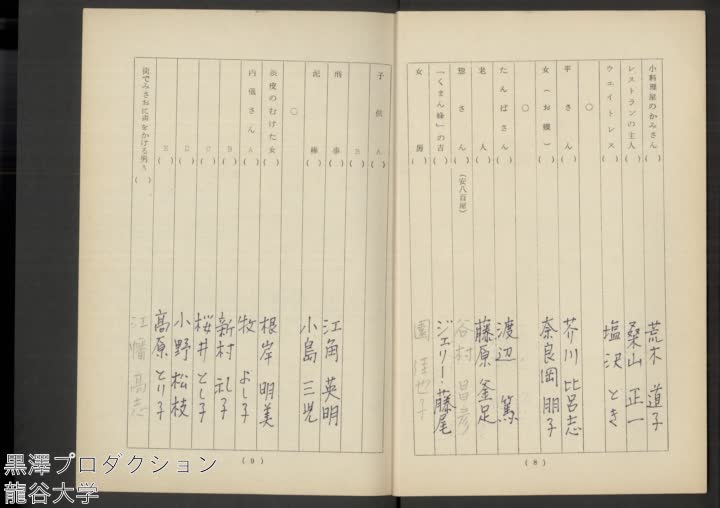 小料理屋のかみさん ( ) 荒木 道子
レストランの主人 ( ) 桑山 正一
ウエイトレス ( ) 塩沢 とき
○
平さん ( ) 芥川 比呂志
女(お蝶) ( ) 奈良岡 朋子
○
たんばさん ( ) 渡辺 篤
老人 ( ) 藤原 釜足
惣さん ( ) (安八百屋) 谷村 昌彦
「くまん蜂」の吉 ( ) ジェリー・藤尾
女房 ( ) 園 佳也子
(8)
子供A ( )
B ( )
刑事 ( ) 江角 英明
泥棒 ( ) 小島 三児
○
渋皮のむけた女 ( ) 根岸 明美
内儀さんA ( ) 牧 よし子
B ( ) 新村 礼子
C ( ) 桜井 とし子
D ( ) 小野 松枝
E ( ) 高原 とり子
街でみさおに声をかける男A ( ) 江幡 高志
(9)
黒澤プロダクション
龍谷大学